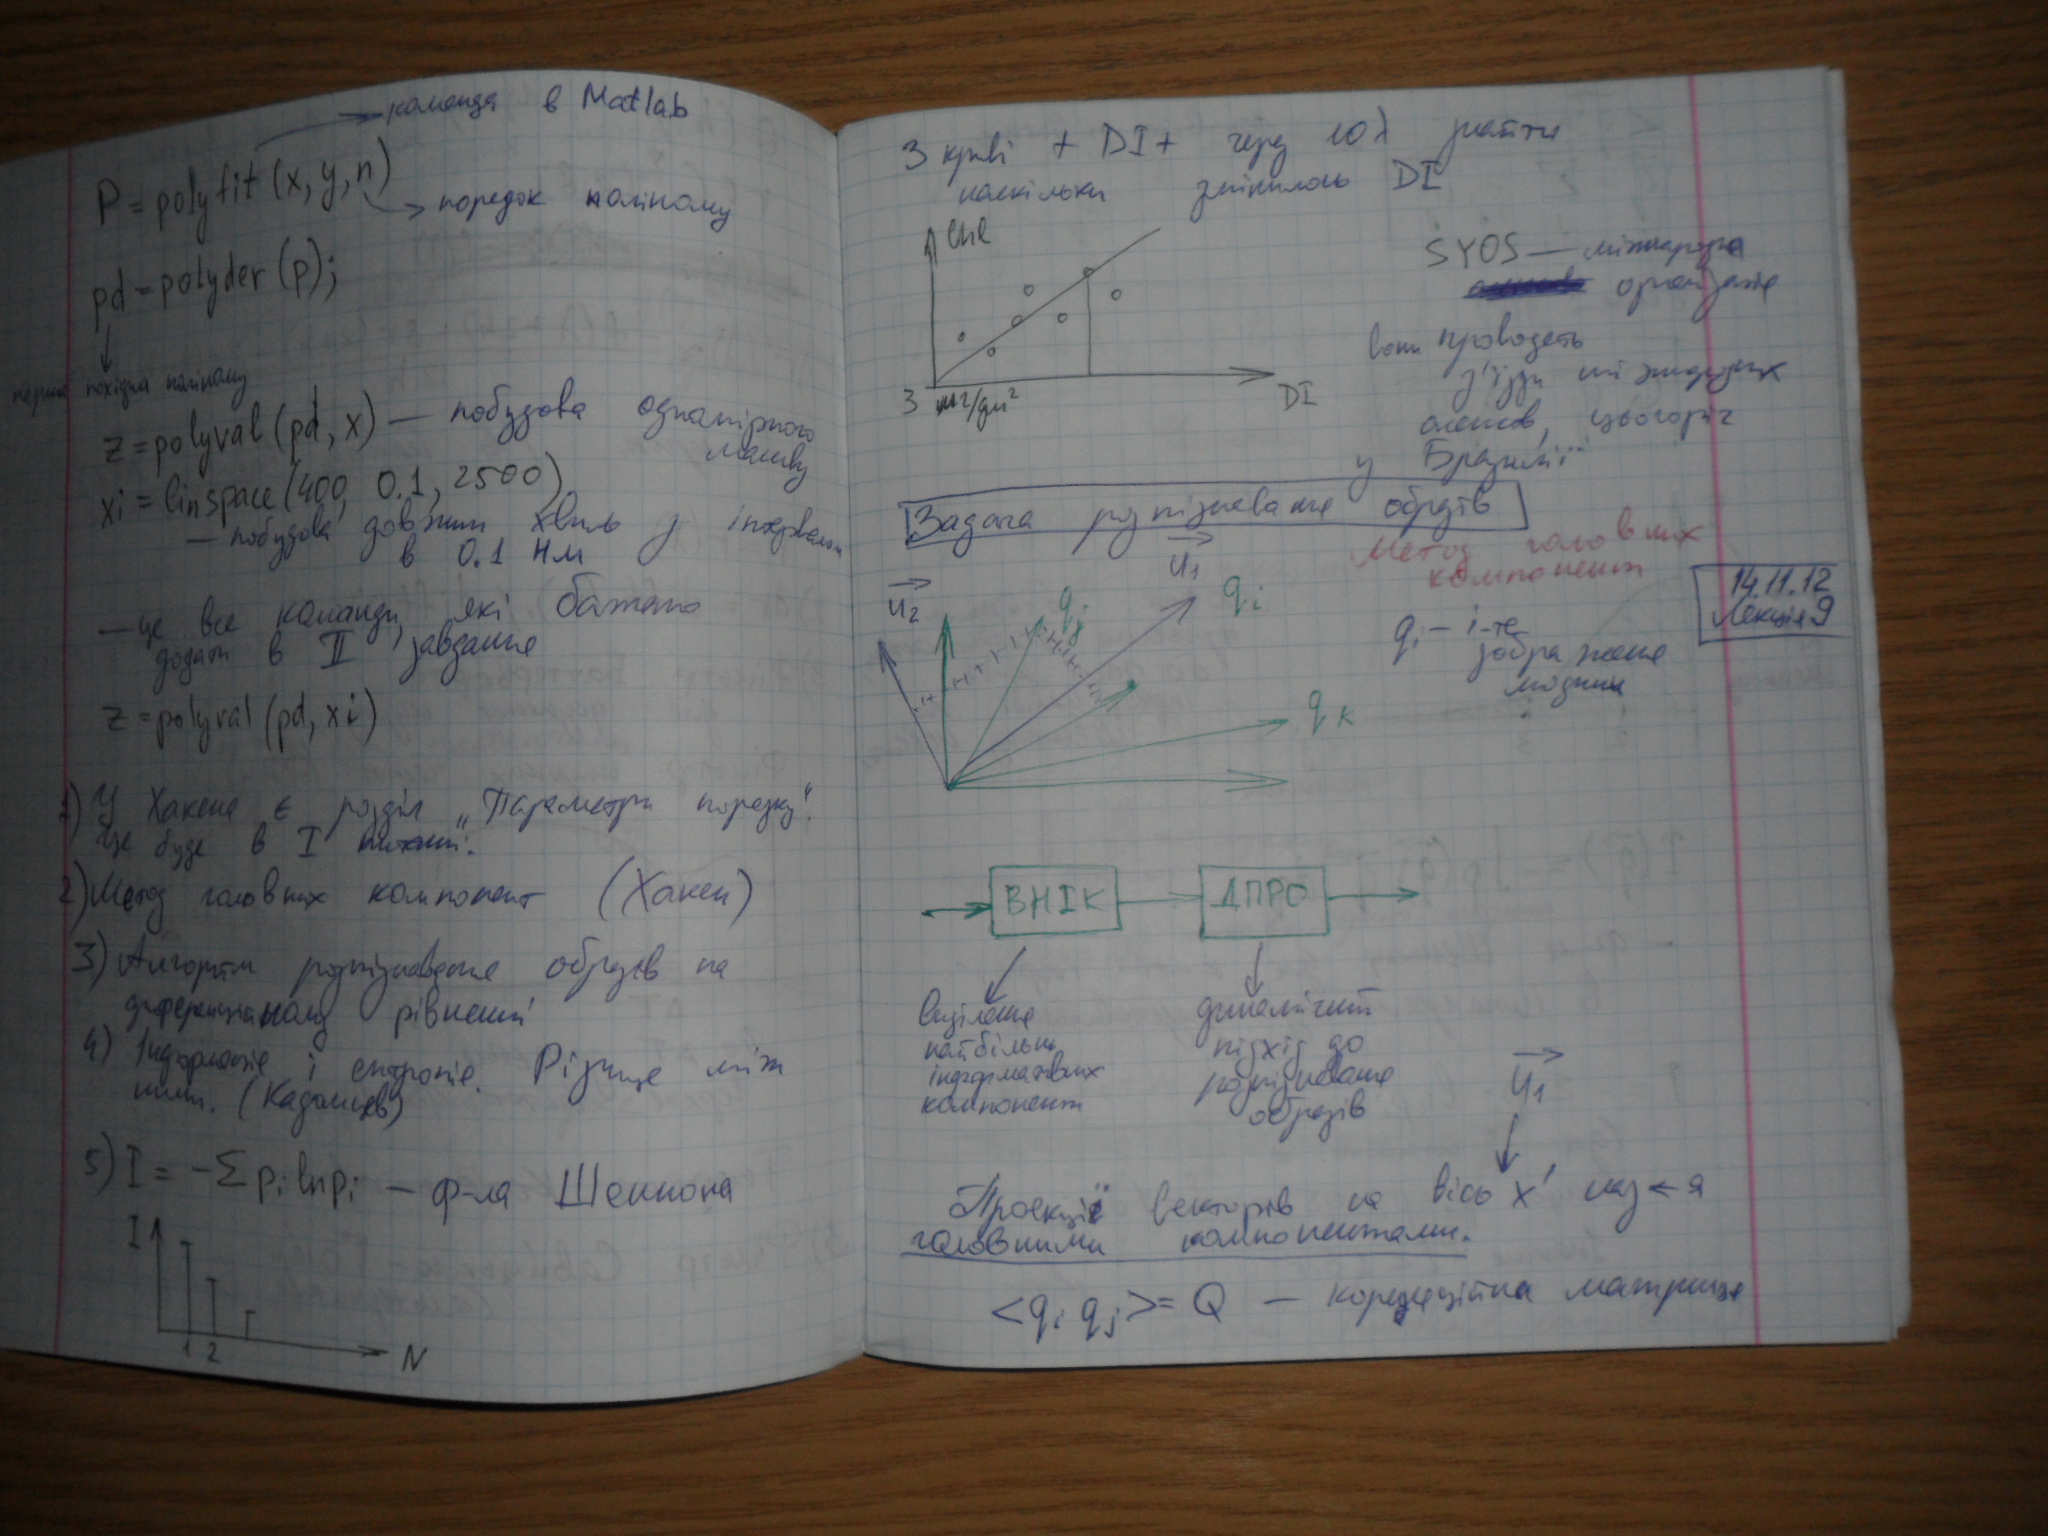 команда в Matlab
P = polyfit (x, y, n)
порядок поліному
pd = polyder (p);
перша похідна поліному
z = polyval (pd, x) — побудова одномірного
масиву
xi = linspace (400, 0.1, 2500)
— побудова довжин хвиль з інтервалом
в 0.1 нм
— це все команди, які бажано
додати в II завдання
z = polyval (pd, xi)
1) У Хакена є розділ „Параметри порядку".
Це буде в I
2) Метод головних компонент (Хакен)
3) Алгоритм розпізнавання образів на
диференціальному рівнянні
4) Інформація і ентропія. Різниця між
ними. (Кадомцев)
5) I = -Σ pᵢ ln pᵢ — ф-ла Шеннона
I
1 2
N
3 криві + DI + через 10 λ знайти
наскільки змінилась DI
Chl
3 мг/дм²
DI
SYOS — міжнародна
організація
вони проводять
з'їзди
цьогоріч
у Бразилії
Задача розпізнавання образів
Метод головних
компонент
14.11.12
Лекція 9
u₂
u₁
qj
qi
qк
qi — i-те
зображення
людини
ВНІК
ДПРО
виділення
найбільш
інформативних
компонент
динамічний
підхід до
розпізнавання
образів
u₁
Проекції векторів на вісь x' наз-ся
головними компонентами.
<qi qj> = Q — кореляційна матриця